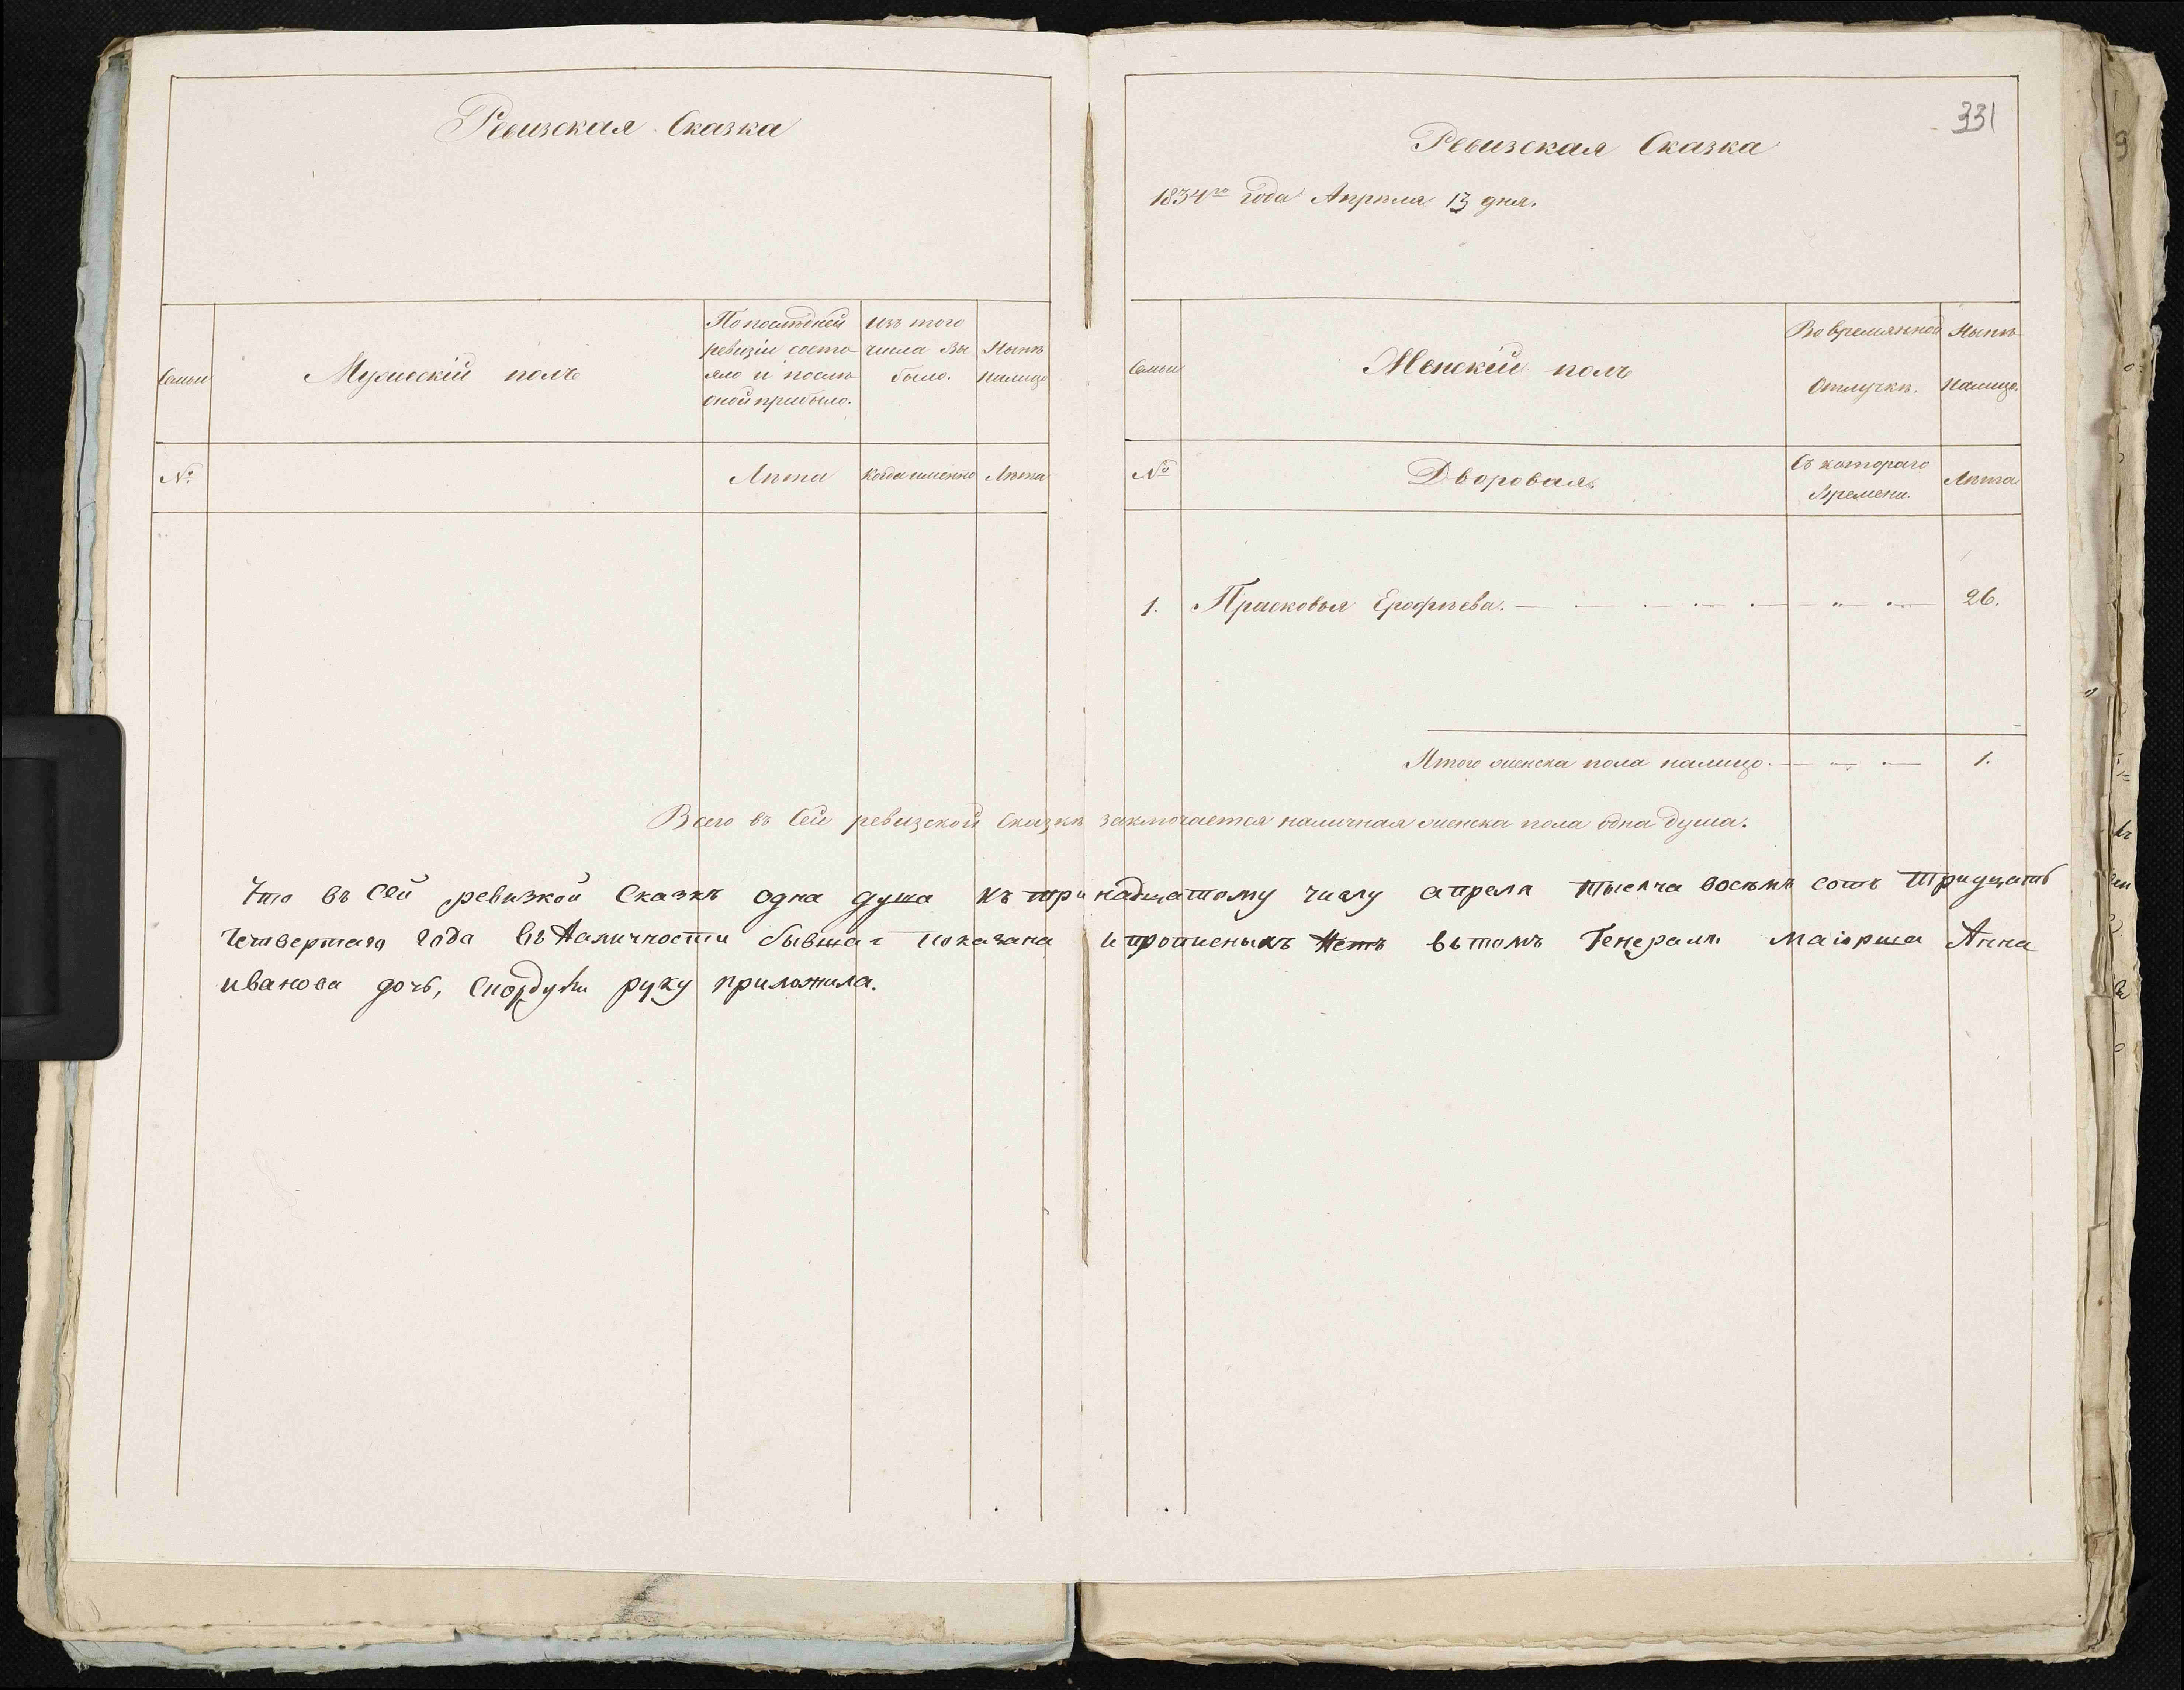 Ревизская Сказка
Семьи
Мужескій полъ
По послѣдней
ревизіи состо
яло и послѣ
оной прибыло.
Изъ того
числа вы
было.
Нынѣ
налицо
№
Лѣта
Когда именно
Лѣта
331
Ревизская Сказка
1834го года Апрѣля 13 дня.
Семьи
Женскій полъ
Во временной
Отлучкѣ.
Нынѣ
налицо.
№
Дворовая.
Съ котораго
Времени.
Лѣта
1. Прасковья Ерофѣева. 26.
Итого женска пола налицо. 1.
Всего въ Сей ревизской Сказкѣ заключается наличная женска пола одна душа.
Что въ сей ревизкой Сказкѣ одна душа къ тринадцатому числу апреля тысяча восемь сотъ тридцать
четвертаго года въ Наличности бывшая показана и прописныхъ Нетъ въ томъ Генералъ маіорша Анна
иванова дочь, руку приложила.